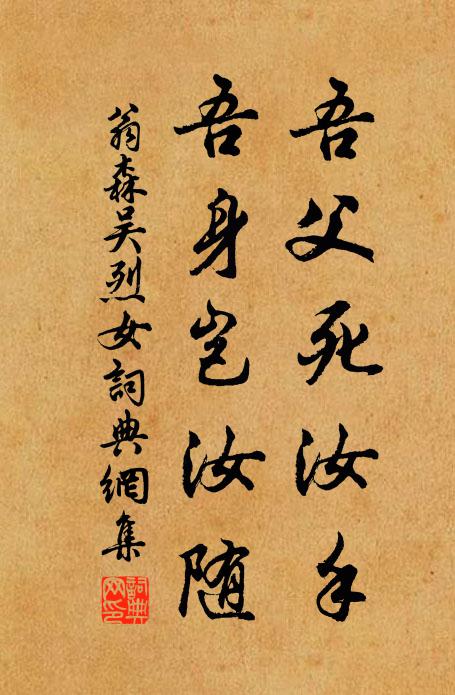 吾父死汝手
吾身岂汝随
翁森吴烈女詞典網集
詞典网印